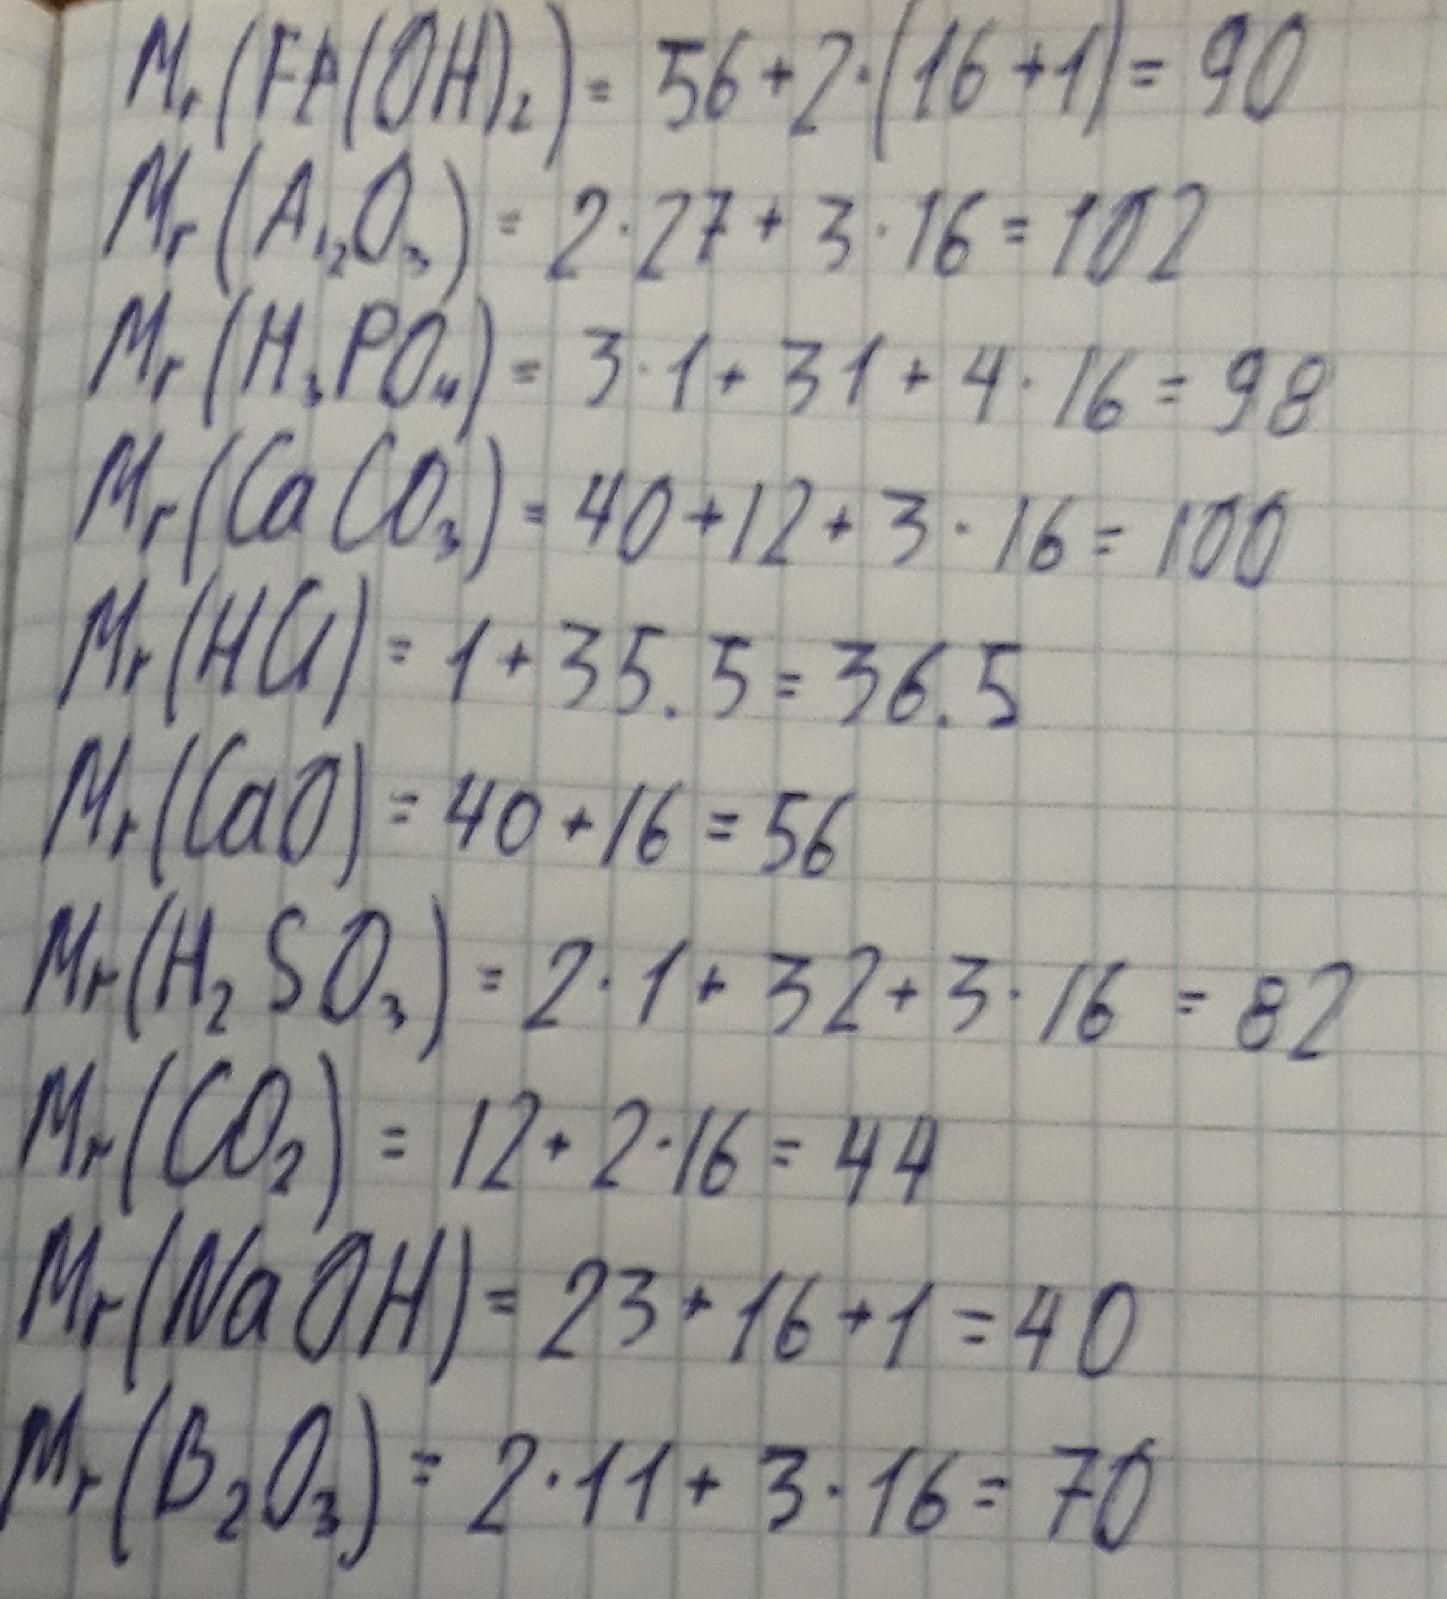 Mr(Fe(OH)₂) = 56 + 2·(16 + 1) = 90
Mr(Al₂O₃) = 2·27 + 3·16 = 102
Mr(H₃PO₄) = 3·1 + 31 + 4·16 = 98
Mr(CaCO₃) = 40 + 12 + 3·16 = 100
Mr(HCl) = 1 + 35.5 = 36.5
Mr(CaO) = 40 + 16 = 56
Mr(H₂SO₃) = 2·1 + 32 + 3·16 = 82
Mr(CO₂) = 12 + 2·16 = 44
Mr(NaOH) = 23 + 16 + 1 = 40
Mr(B₂O₃) = 2·11 + 3·16 = 70